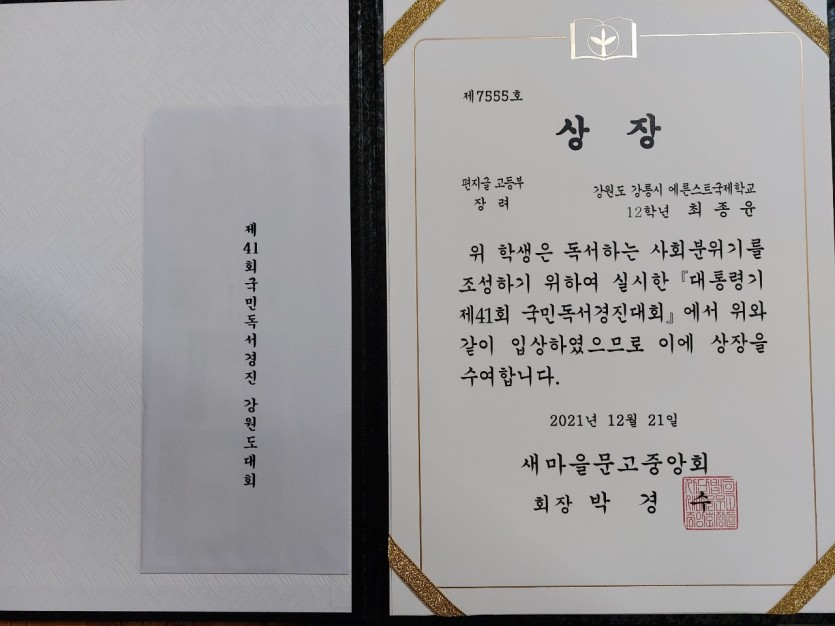 제41회국민독서경진 강원도대회
제7555호
상 장
편지글 고등부
장 려
강원도 강릉시 에른스트국제학교
12학년 최 종 윤
위 학생은 독서하는 사회분위기를
조성하기 위하여 실시한 『대통령기
제41회 국민독서경진대회』에서 위와
같이 입상하였으므로 이에 상장을
수여합니다.
2021년 12월 21일
새마을문고중앙회
회장 박 경 수